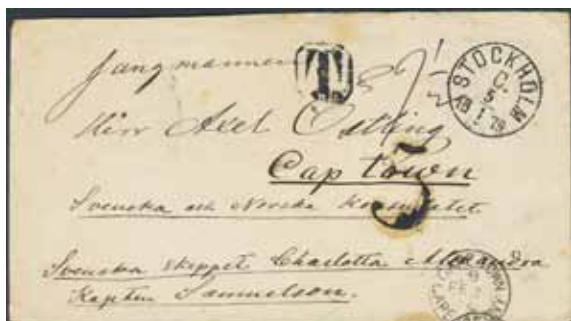 Jungmannen
T
STOCKHOLM
C.
5 1
18 79
Herr Axel Östling
Cap town
3
Svenska och Norska Konsulatet.
Svenska skeppet Charlotta Alexandra
Kapten Samuelson.